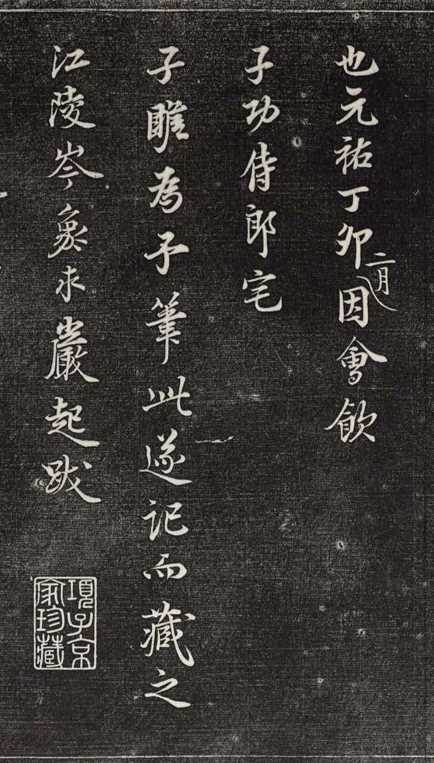 也元祐丁卯二月因會飲
子功侍郎宅
子瞻為予筆此遂記而藏之
江陵岑象求巖起跋
項子京家珍藏